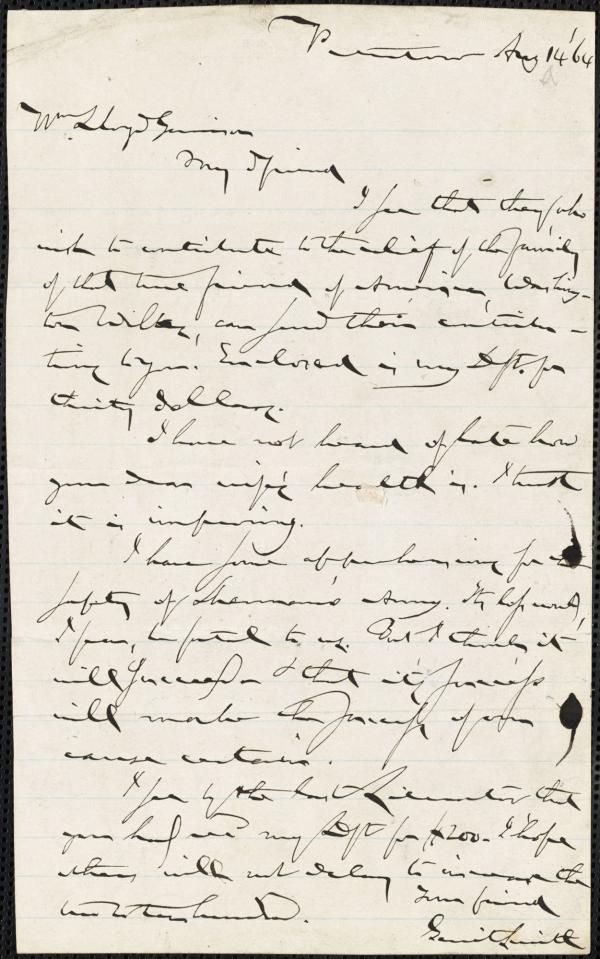 Peterboro Aug 14 '64
Wm. Lloyd Garrison
My Friend
I see that they who
wish to contribute to the relief of the family
of that true friend of America, Washing-
ton Wilks, can send their contribu-
tions to you. Enclosed is my Dft. for
thirty dollars.
I have not heard of late how
your dear wife's health is. I trust
it is improving.
I have some apprehensions for the
safety of Sherman's Army. Its loss would,
I fear, be fatal to us. But I think it
will succeed & that its success
will make the success of our
cause certain.
I see by the last Liberator that
you had recd my Dft for $200 - I hope
others will not delay to increase the
two to ten hundred.
Your friend
Gerrit Smith